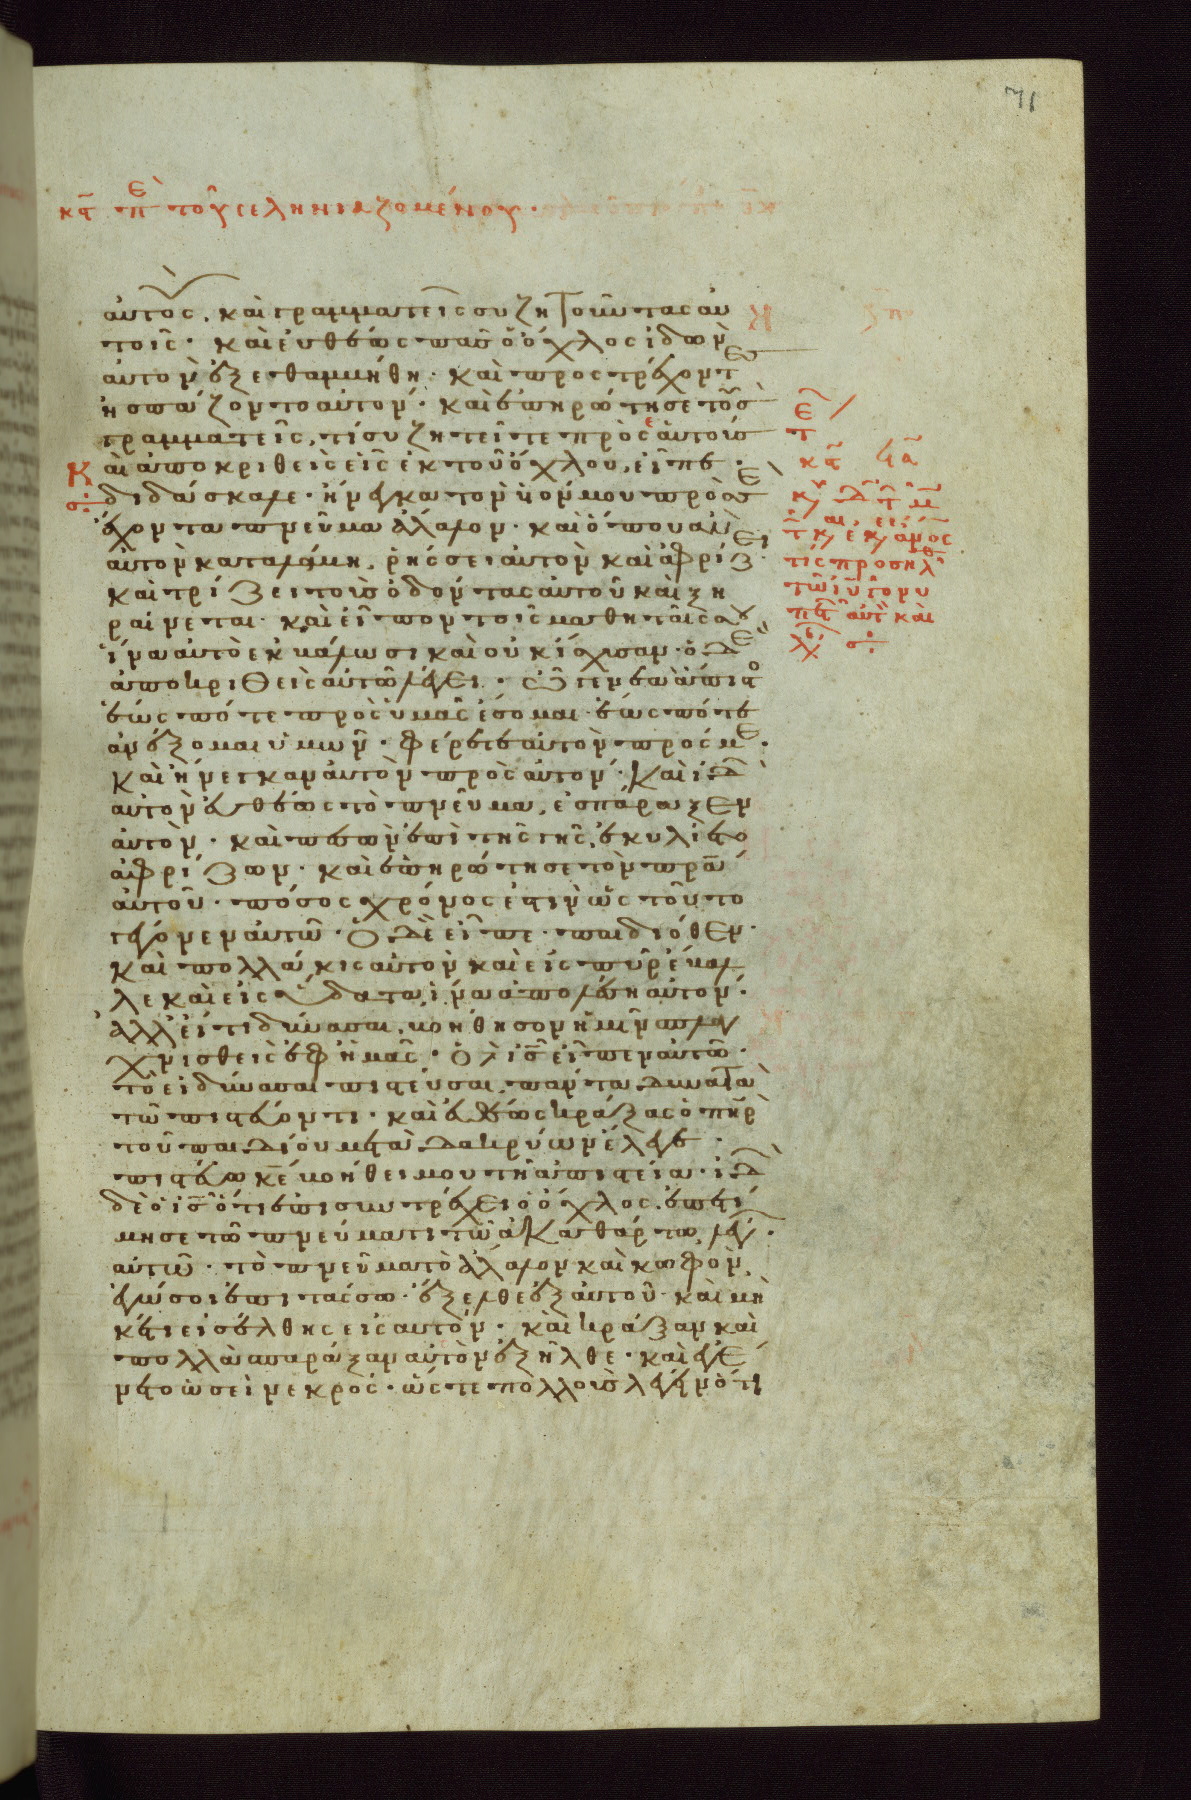 71
κε περὶ τοῦ σεληνιαζομένου.
αὐτοὺς, καὶ γραμματεῖς συζητοῦντας αὐ
τοῖς· καὶ εὐθέως πᾶς ὁ ὄχλος ἰδὼν
αὐτὸν ἐξεθαμβήθη· καὶ προστρέχοντες
ἠσπάζοντο αὐτόν· καὶ ἐπηρώτησε τοὺς
γραμματεῖς, τί συζητεῖτε πρὸς ἑαυτούς
Καὶ ἀποκριθεὶς εἷς ἐκ τοῦ ὄχλου, εἶπε·
διδάσκαλε· ἤνεγκα τὸν υἱόν μου πρὸς σὲ
ἔχοντα πνεῦμα ἄλαλον· καὶ ὅπου ἂν
αὐτὸν καταλάβη, ῥήσσει αὐτὸν καὶ ἀφρίζει
καὶ τρίζει τοὺς ὀδόντας αὐτοῦ καὶ ξη
ραίνεται· καὶ εἶπον τοῖς μαθηταῖς σου
ἵνα αὐτὸ ἐκβάλωσι καὶ οὐκ ἴσχυσαν· ὁ δὲ
ἀποκριθεὶς αὐτῶ λέγει· ὦ γενεὰ ἄπιστος
ἕως πότε πρὸς ὑμᾶς ἔσομαι· ἕως πότε
ἀνέξομαι ὑμῶν· φέρετε αὐτὸν πρός με·
καὶ ἤνεγκαν αὐτὸν πρὸς αὐτόν· καὶ ἰδὼν
αὐτὸν εὐθέως τὸ πνεῦμα, ἐσπάραξεν
αὐτόν· καὶ πεσὼν ἐπὶ τῆς γῆς, ἐκυλίετο
ἀφρίζων· καὶ ἐπηρώτησε τὸν πρα
αὐτοῦ· πόσος χρόνος ἐστὶν ὡς τοῦτο
γέγονεν αὐτῶ· Ὁ δὲ εἶπε· παιδιόθεν·
καὶ πολλάκις αὐτὸν καὶ εἰς πῦρ ἔβαλ
λε καὶ εἰς ὕδατα, ἵνα ἀπολέση αὐτόν·
ἀλλ' εἴ τι δύνασαι, βοήθησον ἡμῖν σπλαγ
χνισθεὶς ἐφ' ἡμᾶς· ὁ δὲ ις εἶπεν αὐτῶ·
τὸ εἰ δύνασαι πιστεῦσαι, πάντα δυνατὰ
τῶ πιστεύοντι· καὶ εὐθέως κράξας ὁ πηρ
τοῦ παιδίου μετὰ δακρύων ἔλεγε·
πιστεύω κε βοήθει μου τῆ ἀπιστεία· ἰδὼν
δὲ ὁ ις ὅτι ἐπισυντρέχει ὁ ὄχλος, ἐπετί
μησε τῶ πνεύματι τῶ ἀκαθάρτω, λέγων
αὐτῶ· τὸ πνεῦμα τὸ ἄλαλον καὶ κωφὸν,
ἐγώ σοι ἐπιτάσσω· ἔξελθε ἐξ αὐτοῦ· καὶ μὴ
κέτι εἰσέλθης εἰς αὐτόν· καὶ κράξαν καὶ
πολλὰ σπαράξαν αὐτὸν ἐξῆλθε· καὶ ἐγέ
νετο ὡσεὶ νεκρός· ὥστε πολλοὺς λέγειν ὅτι